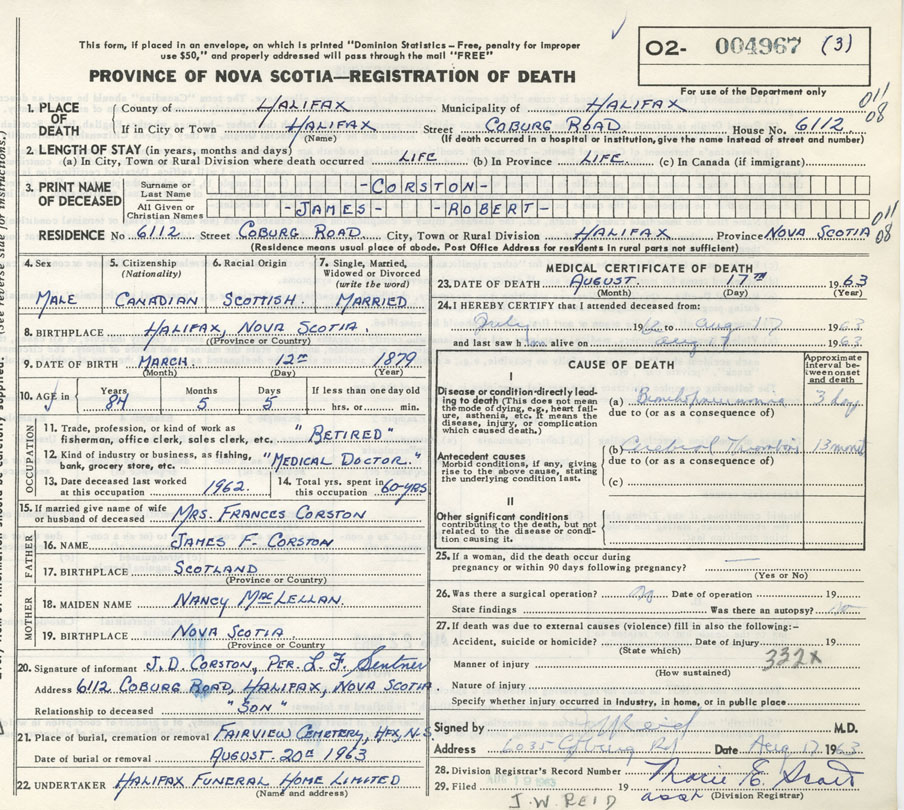 This form, if placed in an envelope, on which is printed "Dominion Statistics – Free, penalty for improper
use $50," and properly addressed will pass through the mail "FREE"
PROVINCE OF NOVA SCOTIA—REGISTRATION OF DEATH
O2- 004967 (3)
For use of the Department only
011
08
1. PLACE OF DEATH
County of HALIFAX Municipality of HALIFAX
If in City or Town HALIFAX Street COBURG ROAD House No. 6112
(Name) (If death occurred in a hospital or institution, give the name instead of street and number)
2. LENGTH OF STAY (in years, months and days)
(a) In City, Town or Rural Division where death occurred LIFE (b) In Province LIFE (c) In Canada (if immigrant)
3. PRINT NAME OF DECEASED
Surname or Last Name -CORSTON-
All Given or Christian Names -JAMES- -ROBERT-
011
08
RESIDENCE No 6112 Street COBURG ROAD City, Town or Rural Division HALIFAX Province NOVA SCOTIA
(Residence means usual place of abode. Post Office Address for residents in rural parts not sufficient)
4. Sex 5. Citizenship (Nationality) 6. Racial Origin 7. Single, Married, Widowed or Divorced (write the word)
MALE CANADIAN SCOTTISH. MARRIED
8. BIRTHPLACE HALIFAX, NOVA SCOTIA.
(Province or Country)
9. DATE OF BIRTH MARCH 12th 1879
(Month) (Day) (Year)
10. AGE in Years Months Days If less than one day old
84 5 5 hrs. or min.
OCCUPATION
11. Trade, profession, or kind of work as
fisherman, office clerk, sales clerk, etc. "RETIRED"
12. Kind of industry or business, as fishing,
bank, grocery store, etc. "MEDICAL DOCTOR."
13. Date deceased last worked at this occupation 1962. 14. Total yrs. spent in this occupation 60-YRS
15. If married give name of wife or husband of deceased MRS. FRANCES CORSTON
FATHER
16. NAME JAMES F. CORSTON
17. BIRTHPLACE SCOTLAND
(Province or Country)
MOTHER
18. MAIDEN NAME NANCY MACLELLAN.
19. BIRTHPLACE NOVA SCOTIA.
(Province or Country)
20. Signature of informant J.D. CORSTON, PER. L F,
Address 6112 COBURG ROAD, HALIFAX, NOVA SCOTIA.
Relationship to deceased "SON"
21. Place of burial, cremation or removal FAIRVIEW CEMETERY, HFX, N.S.
Date of burial or removal AUGUST. 20th 1963
22. UNDERTAKER HALIFAX FUNERAL HOME LIMITED
(Name and address)
MEDICAL CERTIFICATE OF DEATH
23. DATE OF DEATH AUGUST. 17TH 1963
(Month) (Day) (Year)
24. I HEREBY CERTIFY that I attended deceased from:
July 1962 to aug 17 1963
and last saw him alive on aug 17 1963
CAUSE OF DEATH
Approximate interval between onset and death
I
Disease or condition directly leading to death (This does not mean the mode of dying, e.g., heart failure, asthenia, etc. It means the disease, injury, or complication which caused death.)
(a) Bronchopneumonia 3 days
due to (or as a consequence of)
Antecedent causes
Morbid conditions, if any, giving rise to the above cause, stating the underlying condition last.
(b) Cerebral Thrombosis 13 months
due to (or as a consequence of)
(c)
II
Other significant conditions
contributing to the death, but not related to the disease or condition causing it.
25. If a woman, did the death occur during
pregnancy or within 90 days following pregnancy? —
(Yes or No)
26. Was there a surgical operation? no Date of operation 19
State findings Was there an autopsy? no
27. If death was due to external causes (violence) fill in also the following:–
Accident, suicide or homicide? Date of injury 19
(State which)
332X
Manner of injury
(How sustained)
Nature of injury
Specify whether injury occurred in industry, in home, or in public place
Signed by JWReid M.D.
Address 6035 Coburg Rd Date Aug 17 1963
28. Division Registrar's Record Number
29. Filed 19 Marie E. Scott
asst (Division Registrar)
J.W. REID
(See reverse side for instructions.)